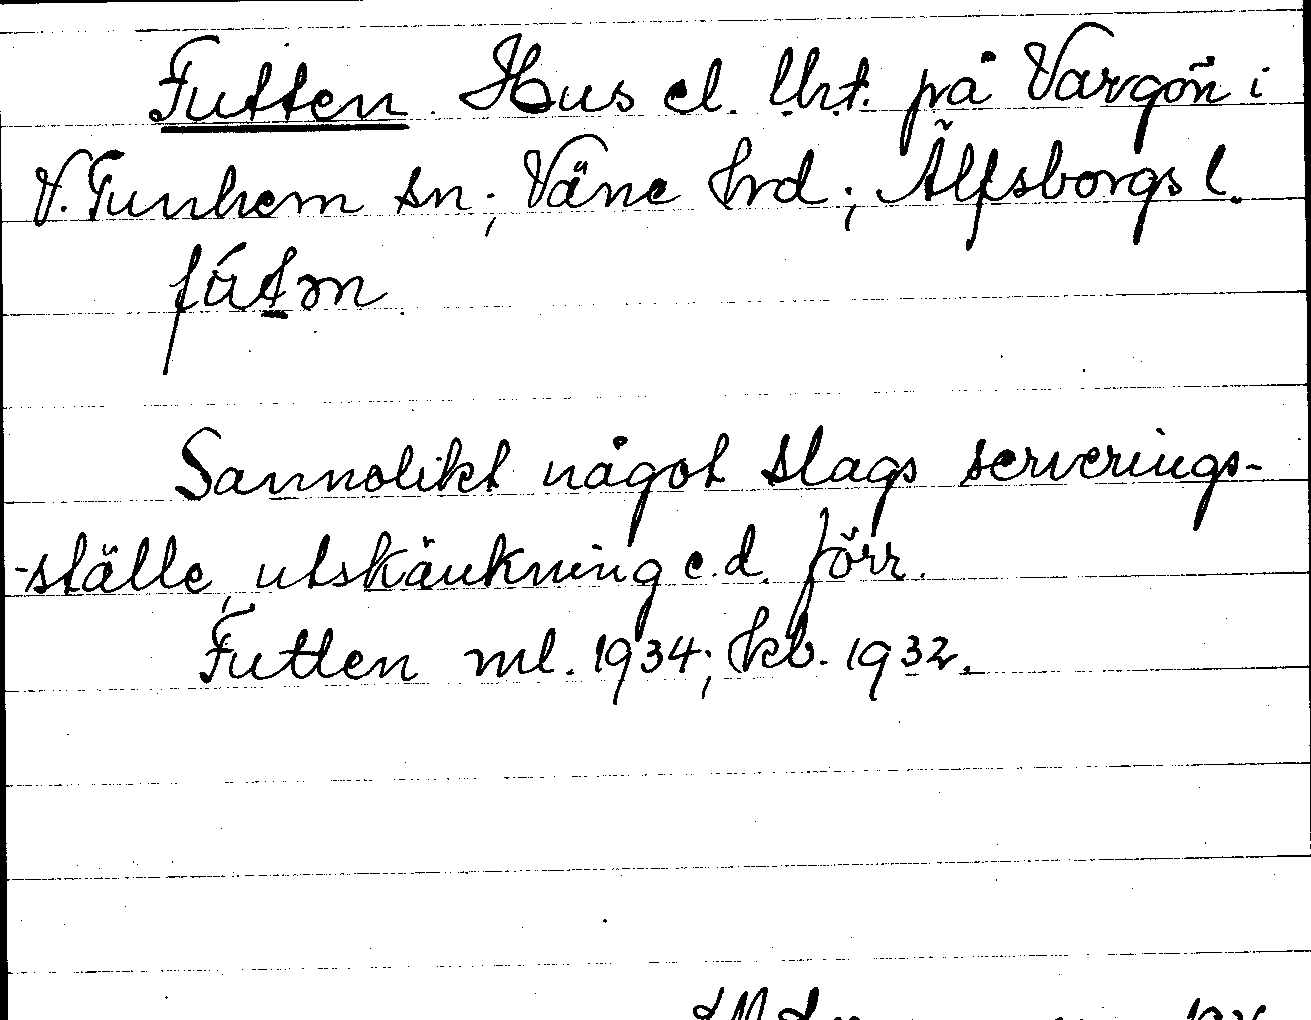 Futten. Hus el. lht. på Vargön i
V. Tunhem sn; Väne hrd; Älfsborgs l.
Sannolikt något slags serverings-
-ställe, utskänkning e.d. förr.
Futten ml. 1934; kb. 1932.